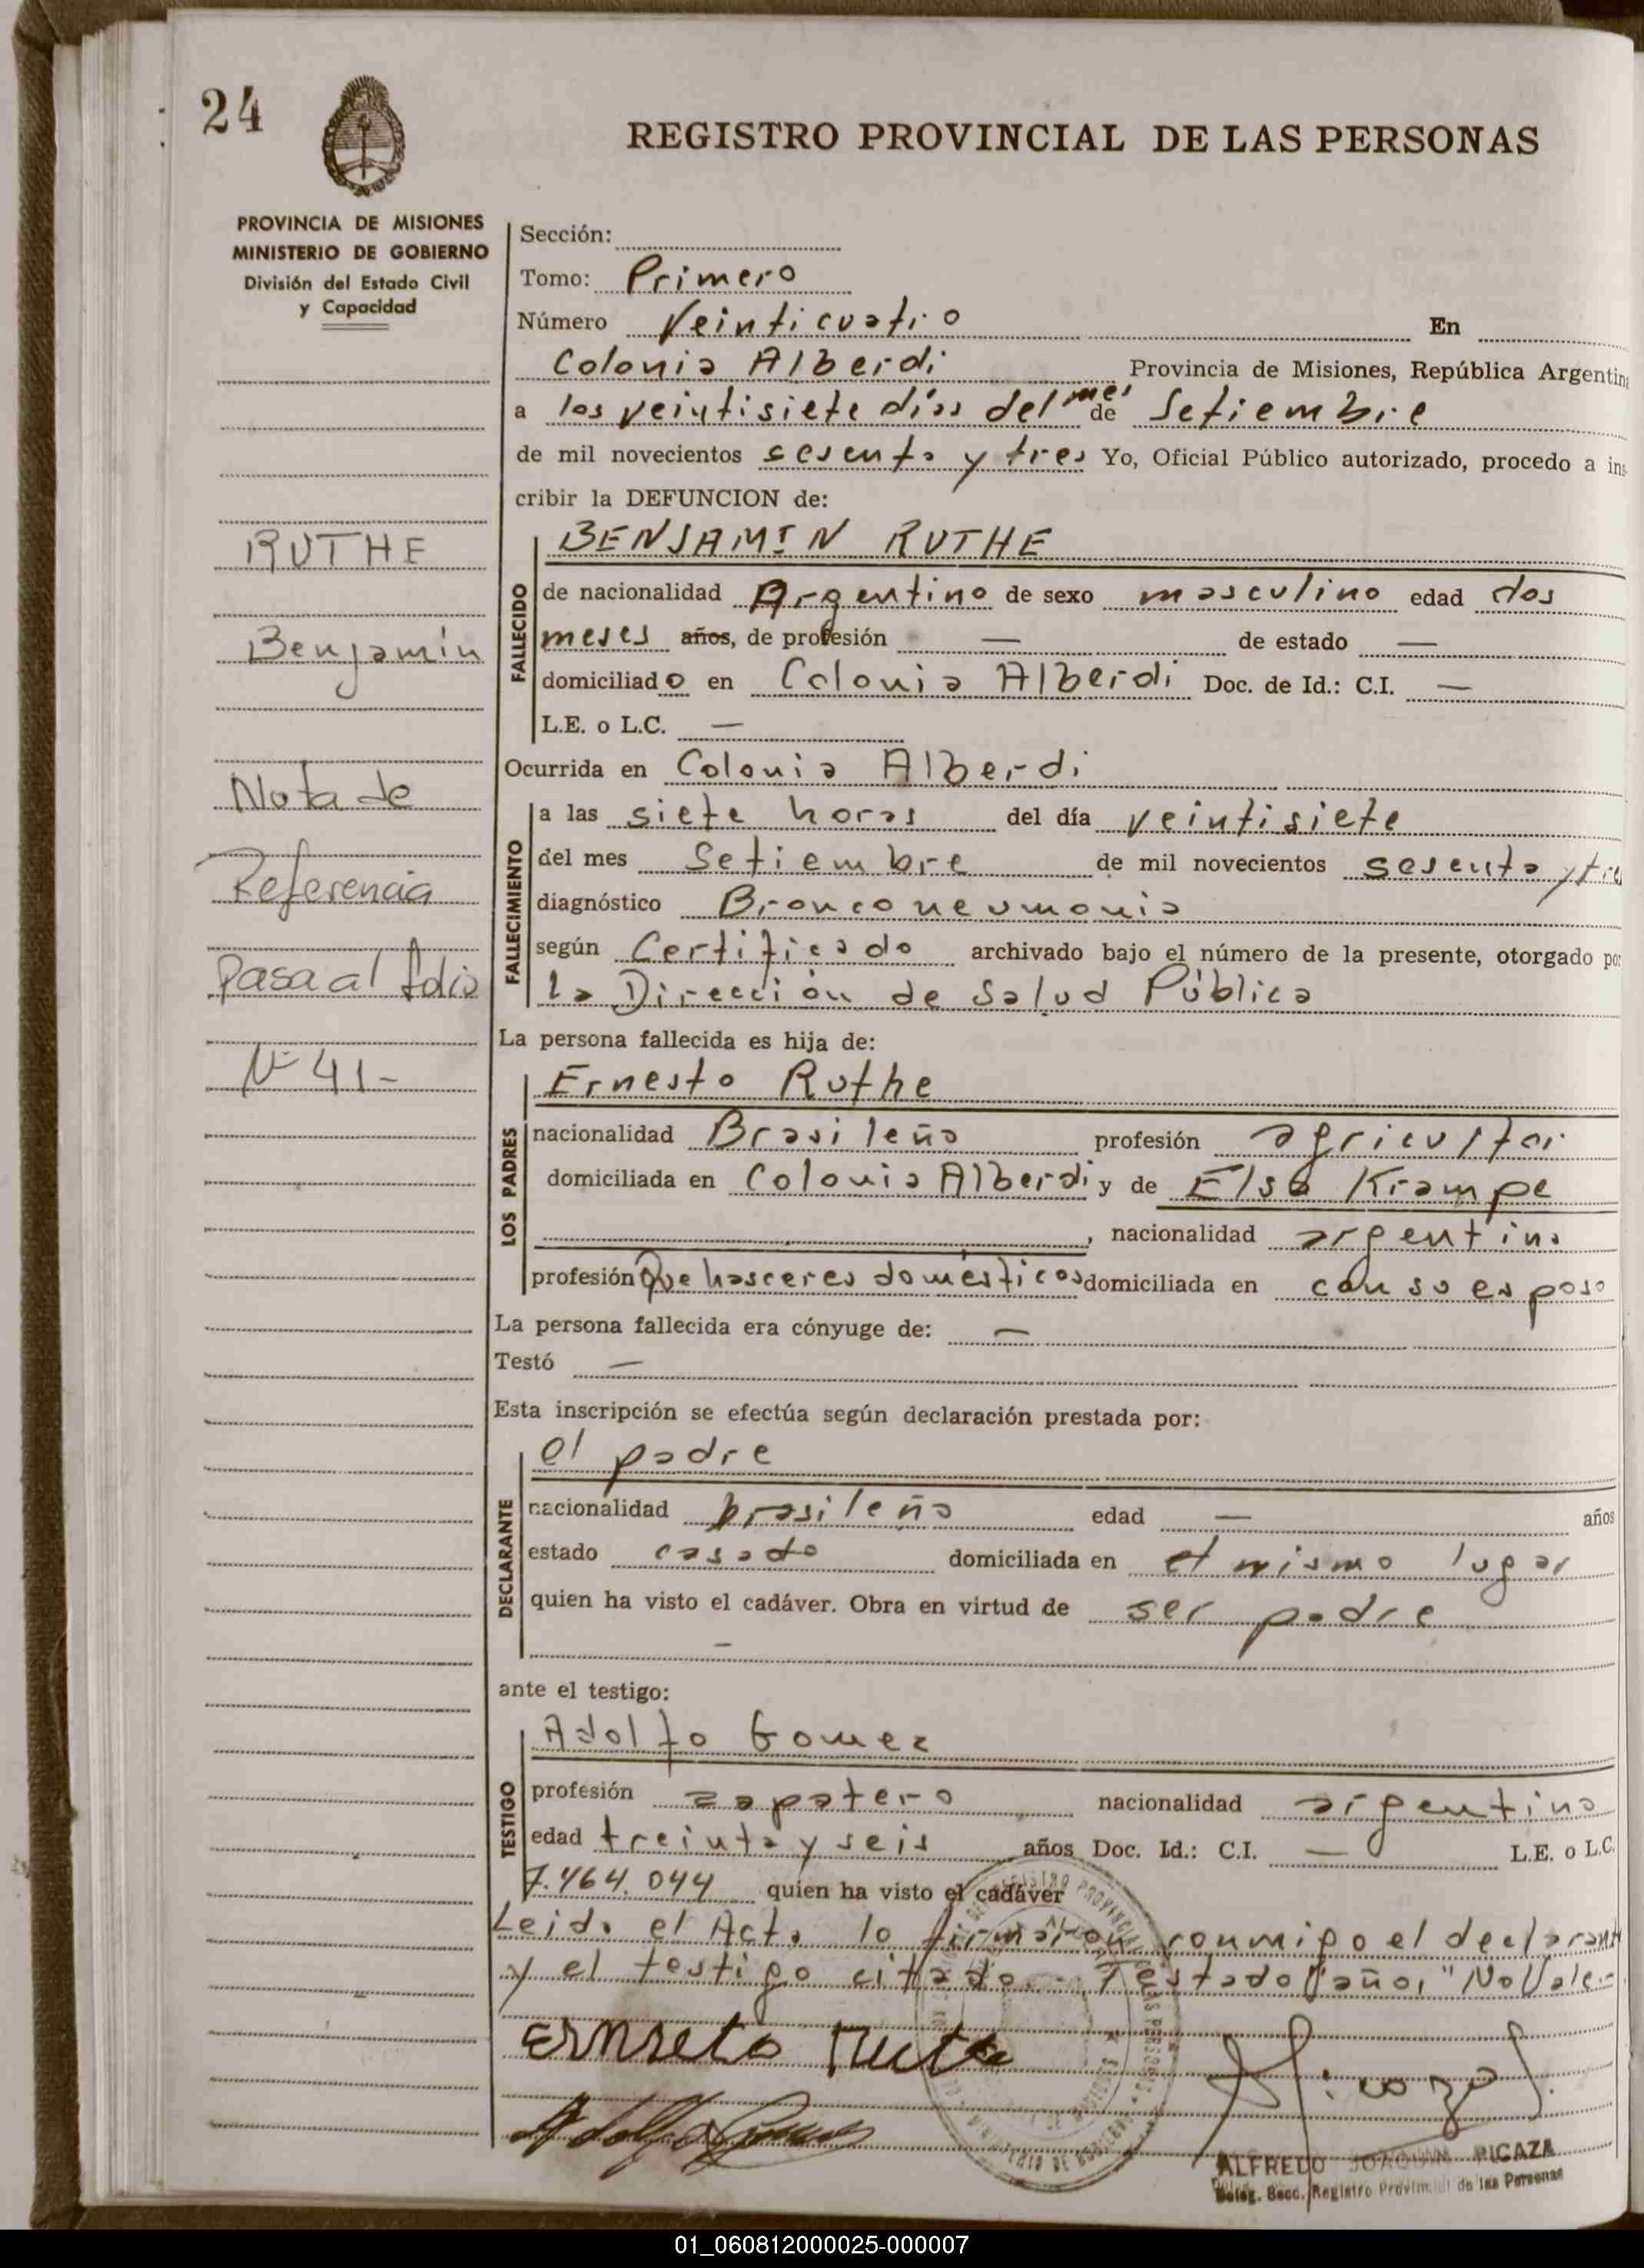 24
REGISTRO PROVINCIAL DE LAS PERSONAS
PROVINCIA DE MISIONES
MINISTERIO DE GOBIERNO
División del Estado Civil
y Capacidad
RUTHE
Benjamín
Nota de
Referencia
Pasa al folio
Nº 41-
Sección:
Tomo: Primero
Número Veinticuatro En
Colonia Alberdi Provincia de Misiones, República Argentina
a los veintisiete días del mes de Setiembre
de mil novecientos sesenta y tres Yo, Oficial Público autorizado, procedo a ins-
cribir la DEFUNCION de:
FALLECIDO
BENJAMIN RUTHE
de nacionalidad Argentino de sexo masculino edad dos
meses años, de profesión — de estado —
domiciliado en Colonia Alberdi Doc. de Id.: C.I. —
L.E. o L.C. —
Ocurrida en Colonia Alberdi
FALLECIMIENTO
a las siete horas del día veintisiete
del mes Setiembre de mil novecientos sesenta y tres
diagnóstico Bronconeumonia
según Certificado archivado bajo el número de la presente, otorgado por
la Dirección de Salud Pública
La persona fallecida es hija de:
LOS PADRES
Ernesto Ruthe
nacionalidad Brasileño profesión agricultor
domiciliada en Colonia Alberdi y de Elsa Krampe
, nacionalidad argentina
profesión Quehasceres domésticos domiciliada en con su esposo
La persona fallecida era cónyuge de: —
Testó —
Esta inscripción se efectúa según declaración prestada por:
DECLARANTE
el padre
nacionalidad brasileño edad — años
estado casado domiciliada en el mismo lugar
quien ha visto el cadáver. Obra en virtud de ser padre
—
ante el testigo:
TESTIGO
Adolfo Gomez
profesión zapatero nacionalidad argentino
edad treinta y seis años Doc. Id.: C.I. — L.E. o L.C.
7.464.044 quien ha visto el cadáver
Leida el Acta, la firmaron conmigo el declarante
y el testigo citado.- Testado "años" No Vale.-
ALFREDO JOAQUIN PICAZA
Deleg. Secc. Registro Provincial de las Personas
01_060812000025-000007